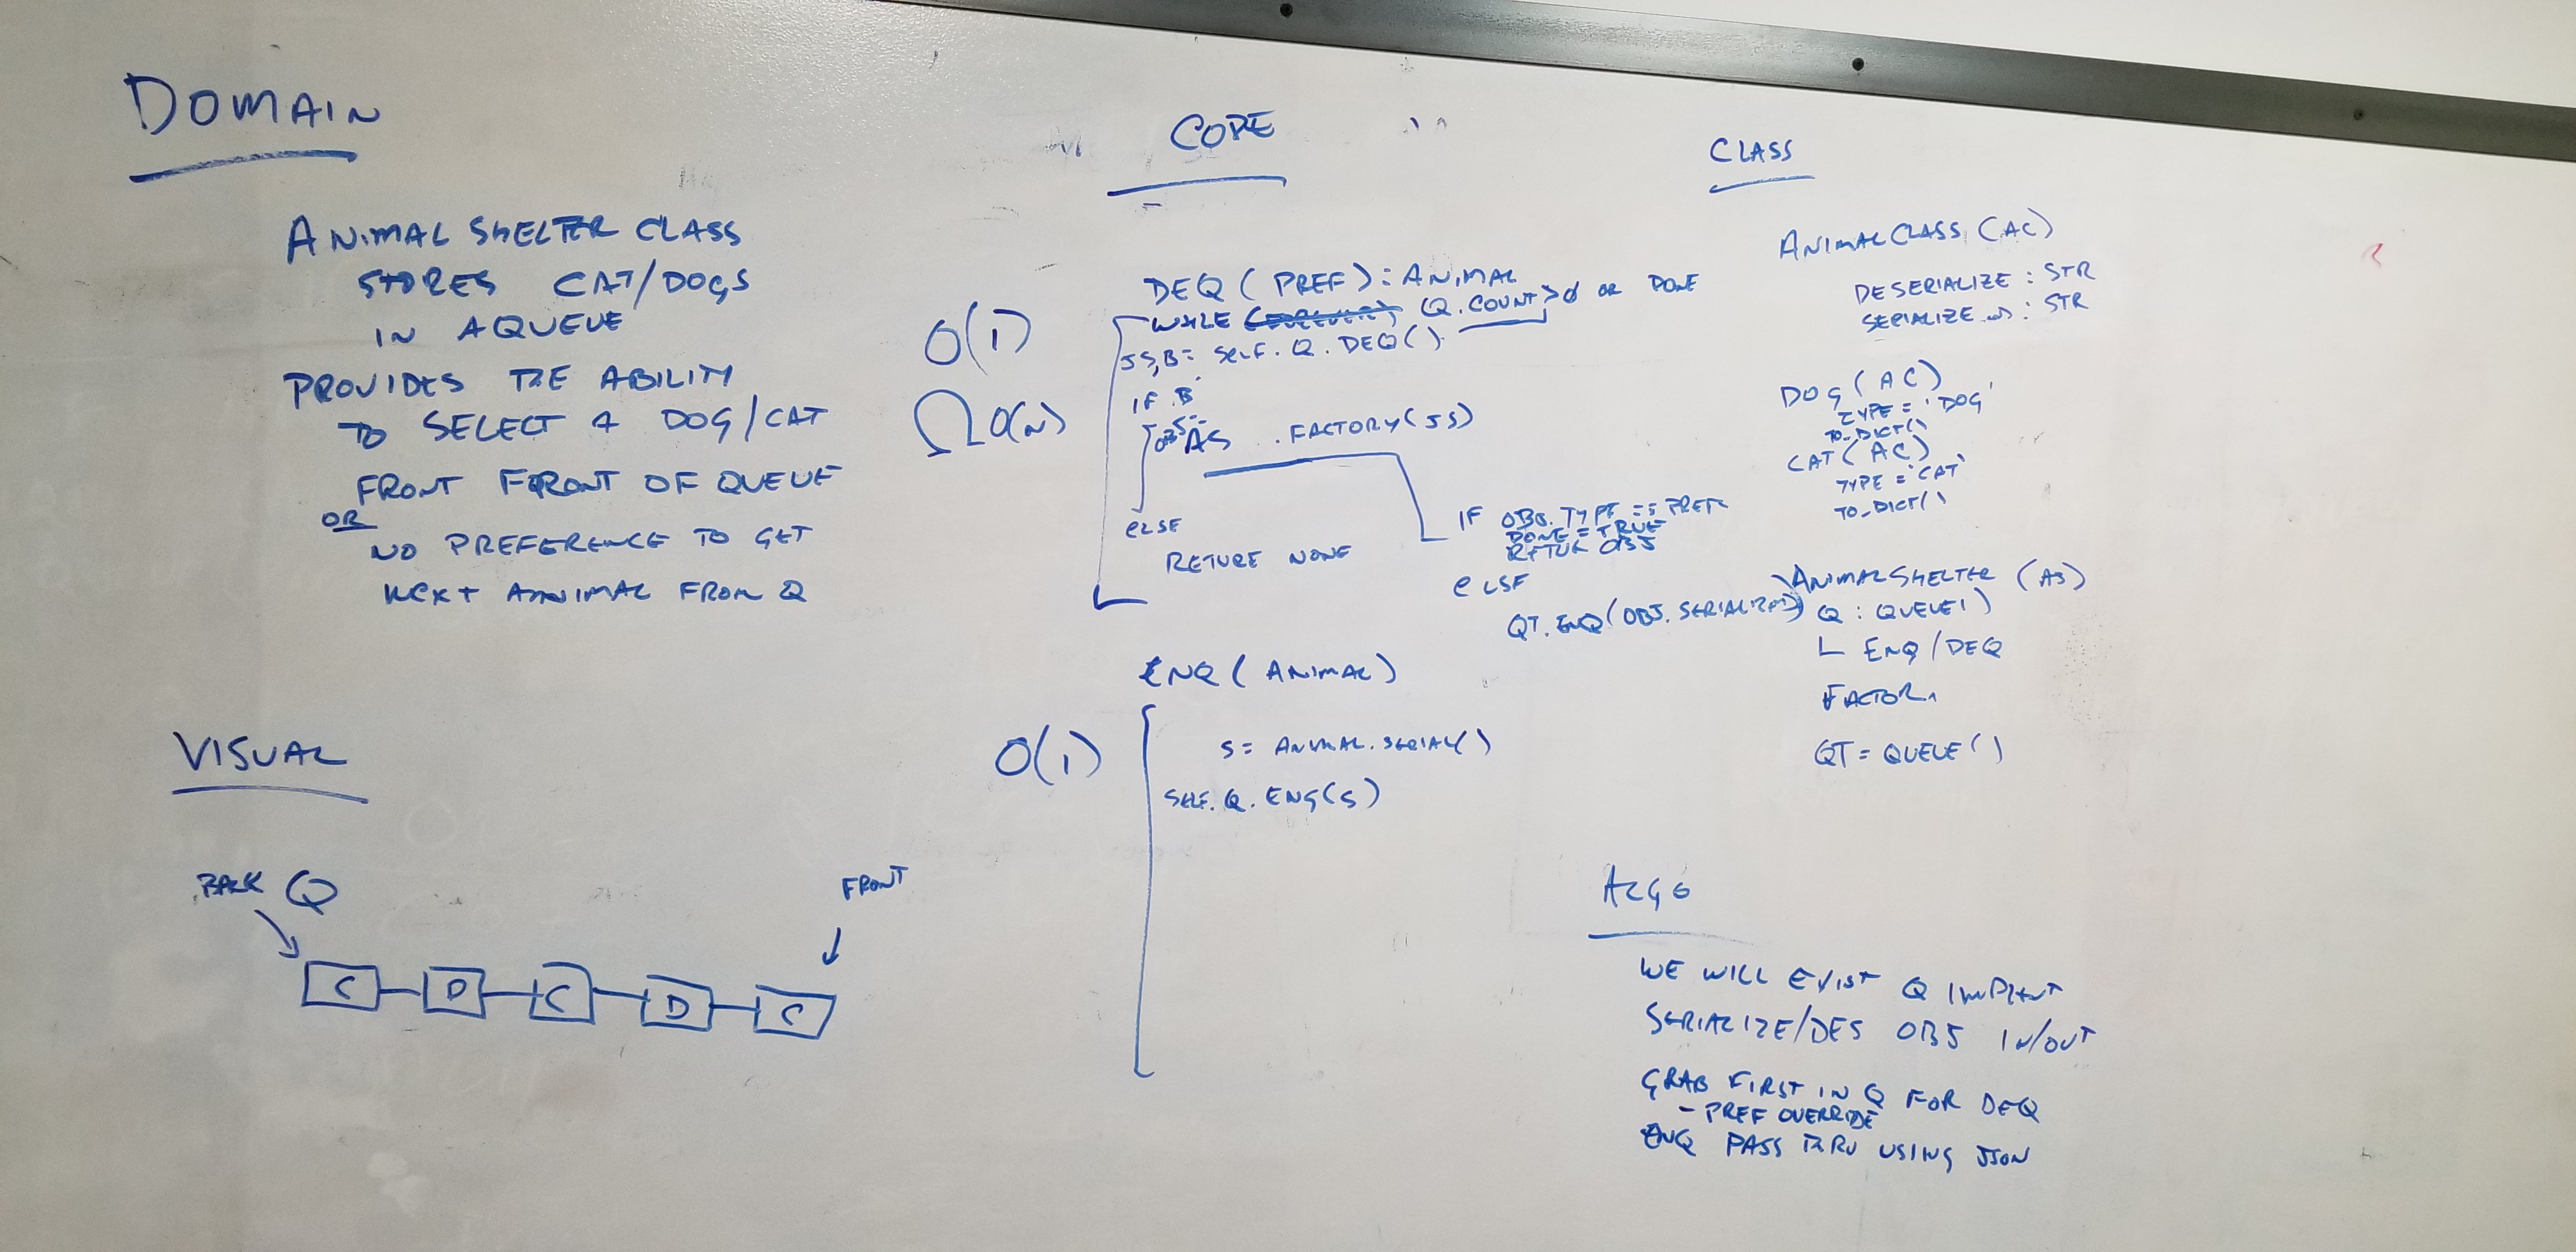 DOMAIN
ANIMAL SHELTER CLASS
STORES CAT/DOGS
IN A QUEUE
PROVIDES THE ABILITY
TO SELECT A DOG/CAT
FRONT FRONT OF QUEUE
OR
NO PREFERENCE TO GET
NEXT ANIMAL FROM Q
VISUAL
BACK Q
FRONT
C D C D C
CODE
O(1)
Ω O(N)
DEQ (PREF): ANIMAL
WHILE Q.COUNT > 0 OR DONE
JS,B = SELF.Q.DEQ()
IF B
OBJ = AS .FACTORY(JS)
IF OBJ.TYPE == PREF
DONE = TRUE
RETUR OBJ
ELSE
QT.ENQ(OBJ.SERIALIZED)
ELSE
RETURE NONE
ENQ (ANIMAL)
O(1)
S = ANIMAL.SERIAL()
SELF.Q.ENQ(S)
CLASS
ANIMAL CLASS (AC)
DESERIALIZE : STR
SERIALIZE : STR
DOG (AC)
TYPE = 'DOG'
TO_DICT()
CAT (AC)
TYPE = 'CAT'
TO_DICT()
ANIMAL SHELTER (AS)
Q : QUEUE()
ENQ/DEQ
FACTOR
QT = QUEUE()
ALGO
WE WILL EXIST Q
SERIALIZE/DES OBJ IN/OUT
GRAB FIRST IN Q FOR DEQ
- PREF OVERRIDE
ENQ PASS THRU USING JSON